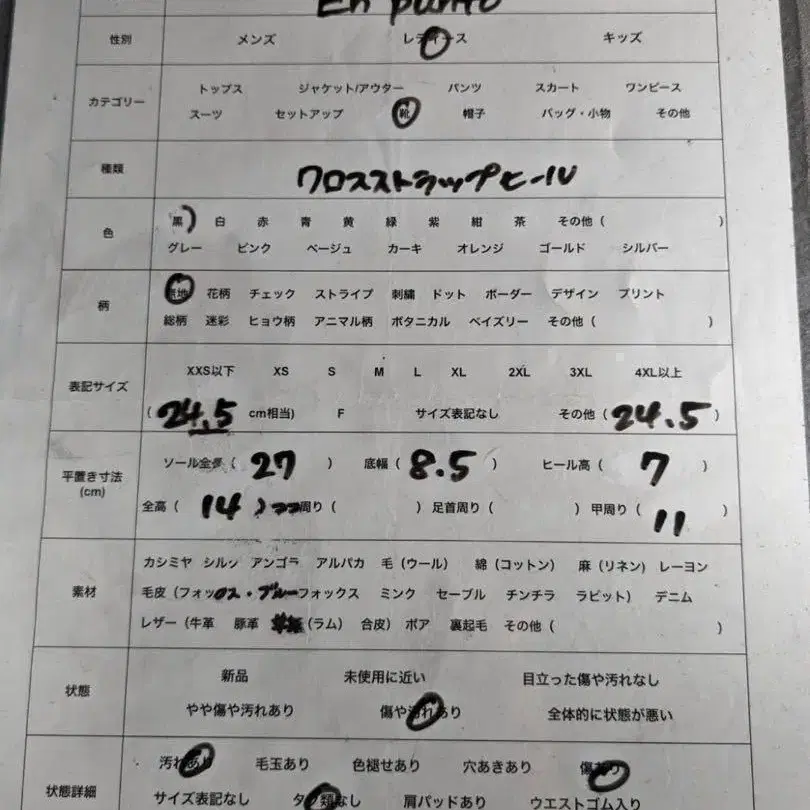 En punto
性別 メンズ レディース キッズ
トップス ジャケット/アウター パンツ スカート ワンピース
カテゴリー
スーツ セットアップ 靴 帽子 バッグ・小物 その他
種類 クロスストラップヒール
黒 白 赤 青 黄 緑 紫 紺 茶 その他 ( )
色
グレー ピンク ベージュ カーキ オレンジ ゴールド シルバー
無地 花柄 チェック ストライプ 刺繍 ドット ボーダー デザイン プリント
柄
総柄 迷彩 ヒョウ柄 アニマル柄 ボタニカル ペイズリー その他 ( )
XXS以下 XS S M L XL 2XL 3XL 4XL以上
表記サイズ
( 24.5 cm相当) F サイズ表記なし その他 ( 24.5 )
ソール全長 ( 27 ) 底幅 ( 8.5 ) ヒール高 ( 7 )
平置き寸法
(cm)
全高 ( 14 ) 周り ( ) 足首周り ( ) 甲周り ( 11 )
カシミヤ シルク アンゴラ アルパカ 毛 (ウール) 綿 (コットン) 麻 (リネン) レーヨン
素材
毛皮 (フォックス・ブルーフォックス ミンク セーブル チンチラ ラビット) デニム
レザー (牛革 豚革 (ラム) 合皮) ボア 裏起毛 その他 ( )
新品 未使用に近い 目立った傷や汚れなし
状態
やや傷や汚れあり 傷や汚れあり 全体的に状態が悪い
汚れあり 毛玉あり 色褪せあり 穴あきあり 傷あり
状態詳細
サイズ表記なし タグ類なし 肩パッドあり ウエストゴム入り